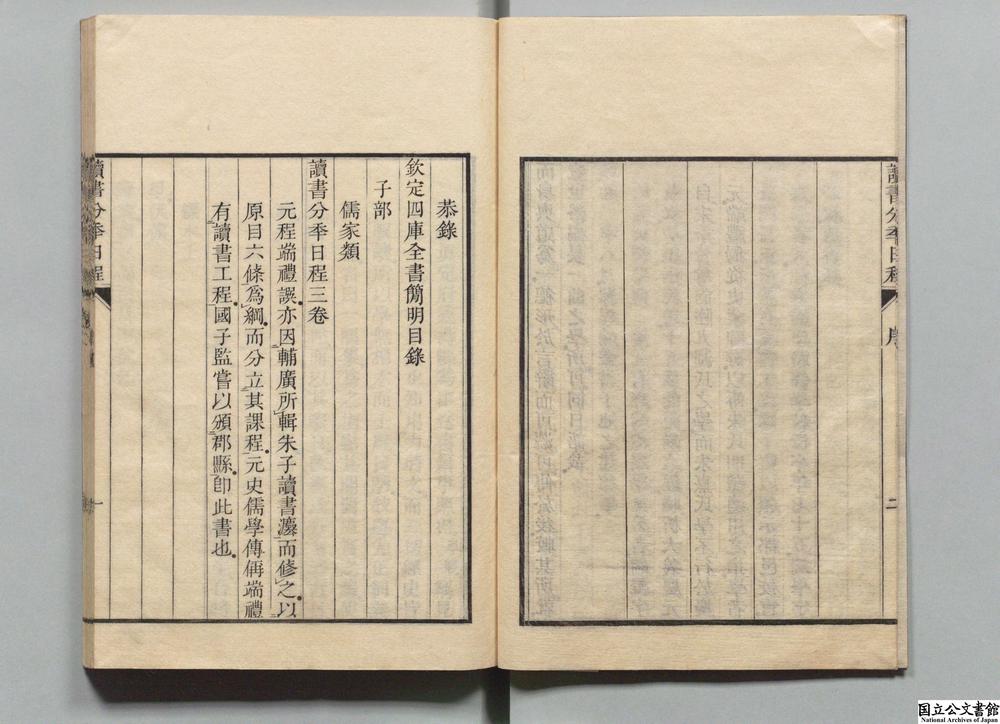 讀書分秊日程
序
二
恭錄
欽定四庫全書簡明目錄
子部
儒家類
讀書分秊日程三卷
元程端禮譔亦因輔廣所輯朱子讀書灋而修之以
原目六條爲綱而分立其課程元史儒學傳偁端禮
有讀書工程國子監嘗以頒郡縣卽此書也
讀書分秊日程
一
国立公文書館
National Archives of Japan